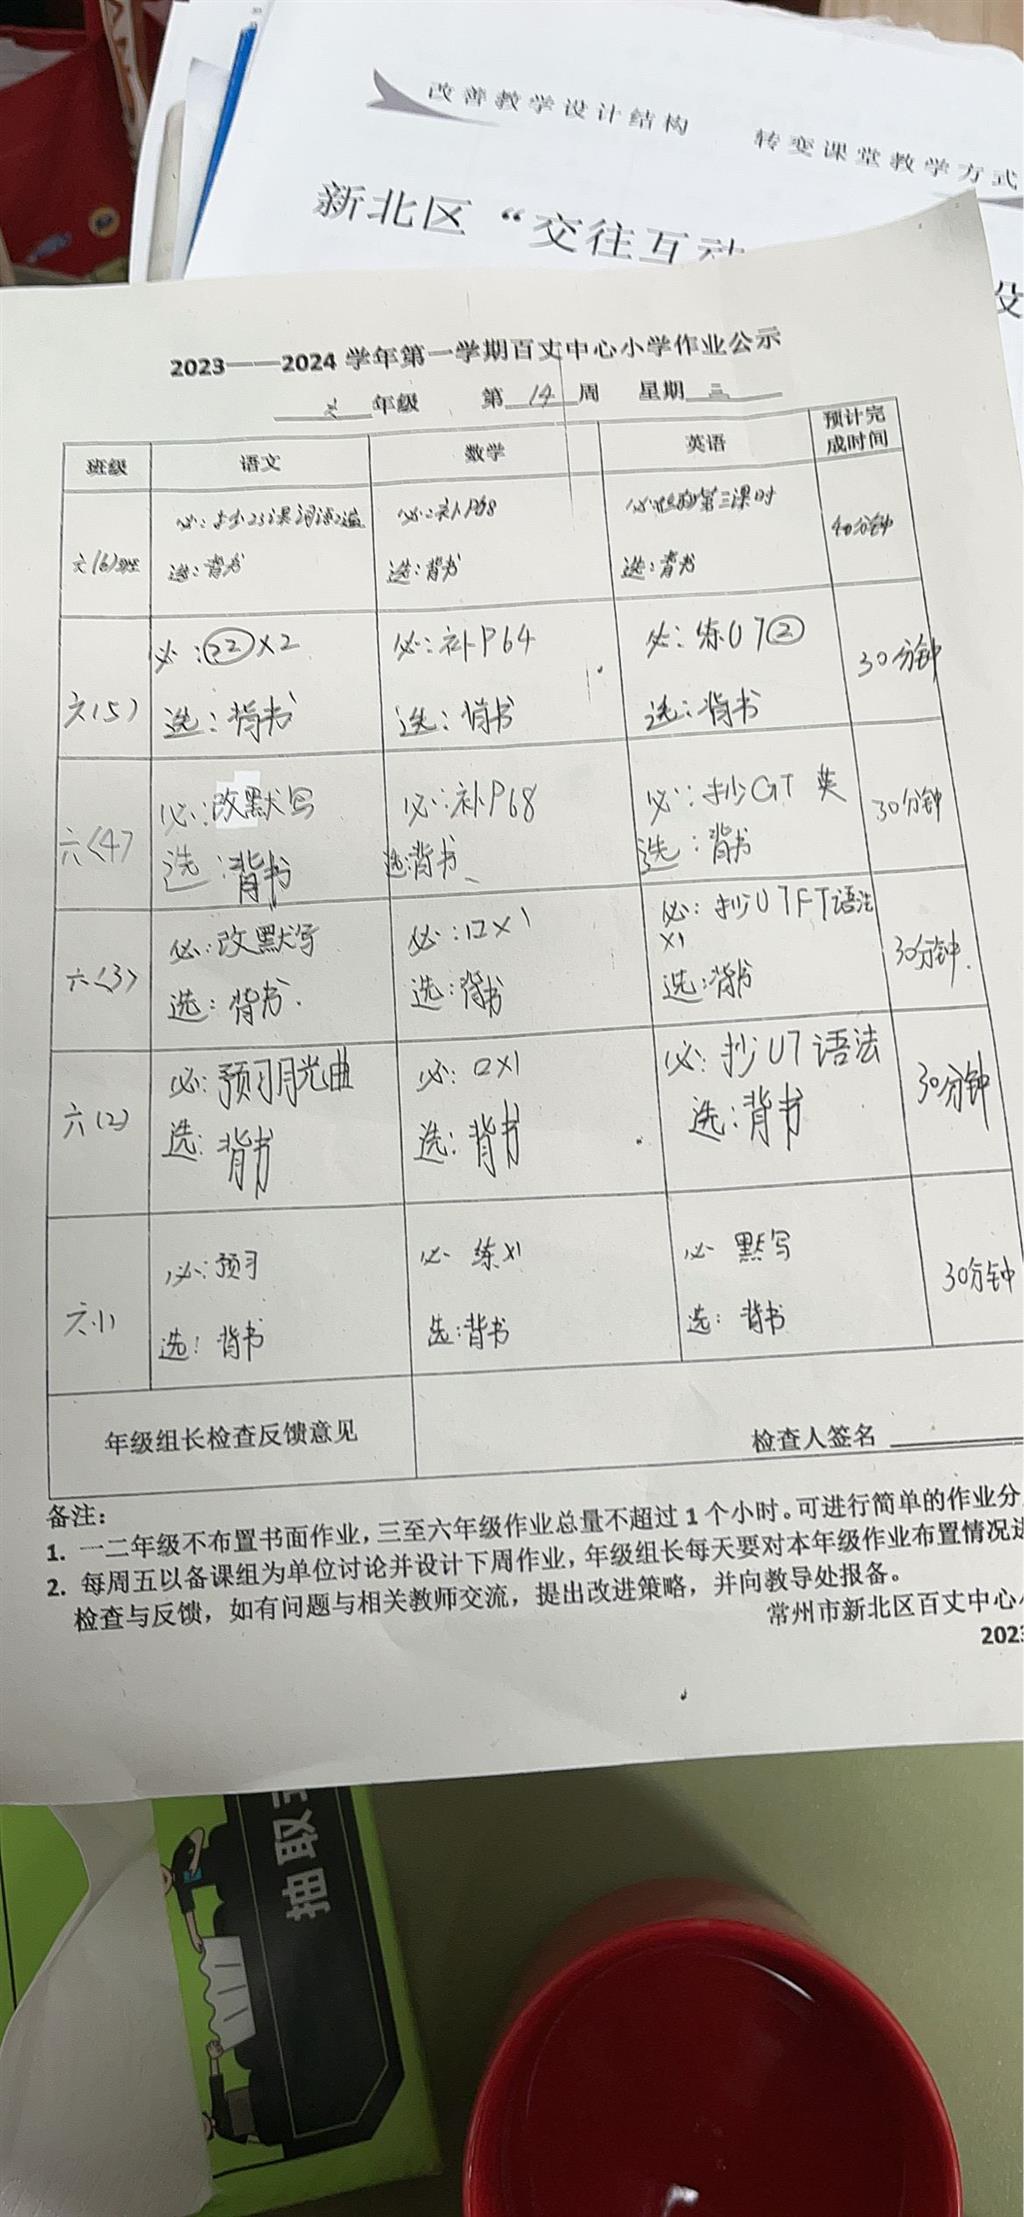 改善教学设计结构 转变课堂教学方式
新北区“交往互动
2023——2024 学年第一学期百丈中心小学作业公示
六 年级 第 14 周 星期 三
班级 语文 数学 英语 预计完成时间
六(6)班 必:抄23课词语2遍 必:补P68 第三课时 40分钟
选:背书 选:背书 选:背书
六(5) 必:㉒×2 必:补P64 必:练U7② 30分钟
选:背书 选:背书 选:背书
六(4) 必:改默写 必:补P68 必:抄GT 英 30分钟
选:背书 选:背书 选:背书
六(3) 必:改默写 必:口×1 必:抄U7FT语法 30分钟.
×1
选:背书. 选:背书 选:背书
六(2) 必:预习月光曲 必:口×1 必:抄U7语法 30分钟
选:背书 选:背书 选:背书
六(1) 必:预习 必 练×1 必 默写 30分钟
选:背书 选:背书 选:背书
年级组长检查反馈意见 检查人签名
备注:
1. 一二年级不布置书面作业,三至六年级作业总量不超过 1 个小时。可进行简单的作业分
2. 每周五以备课组为单位讨论并设计下周作业,年级组长每天要对本年级作业布置情况进
检查与反馈,如有问题与相关教师交流,提出改进策略,并向教导处报备。
常州市新北区百丈中心小
2023
抽取